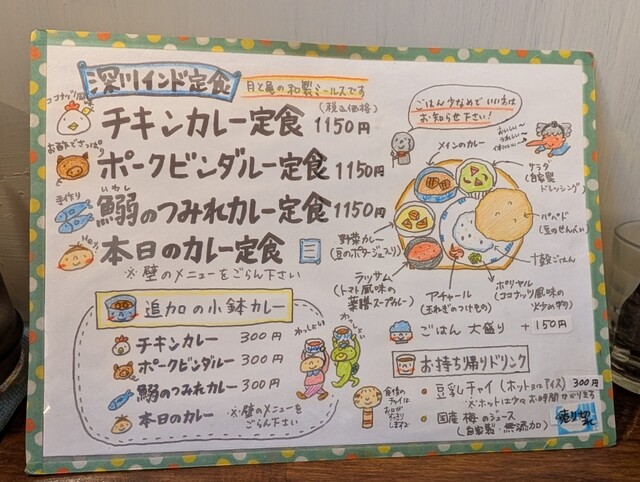 深川インド定食
月と亀の和製ミールスです
(税込価格)
ココナッツ風味
チキンカレー定食 1150円
お酢でさっぱり
ポークビンダルー定食 1150円
手作り
いわし
鰯のつみれカレー定食 1150円
Hey,
本日のカレー定食
※壁のメニューをごらん下さい
追加の小鉢カレー
チキンカレー 300円
ポークビンダルー 300円
鰯のつみれカレー 300円
本日のカレー ※壁のメニューを
ごらん下さい
わっしょい
わっしょい
ごはん少なめでいい方は
お知らせ下さい!
おいしい〜
うれしい〜
メインのカレー
サラダ
(自家製
ドレッシング)
パパド
(豆のせんべい)
野菜カレー
(豆のポタージュ入り)
ラッサム
(トマト風味の
薬膳スープカレー)
アチャール
(玉ねぎのつけもの)
ポリヤル
(ココナッツ風味の
炒め物)
十穀ごはん
ごはん 大盛り +150円
お持ち帰りドリンク
食後の
チャイは
お口が
すっきり
しますよ
・豆乳チャイ (ホット又はアイス) 300円
※ホットは少々お時間かかります
・国産 梅のジュース
(自家製・無添加)
売り切れ